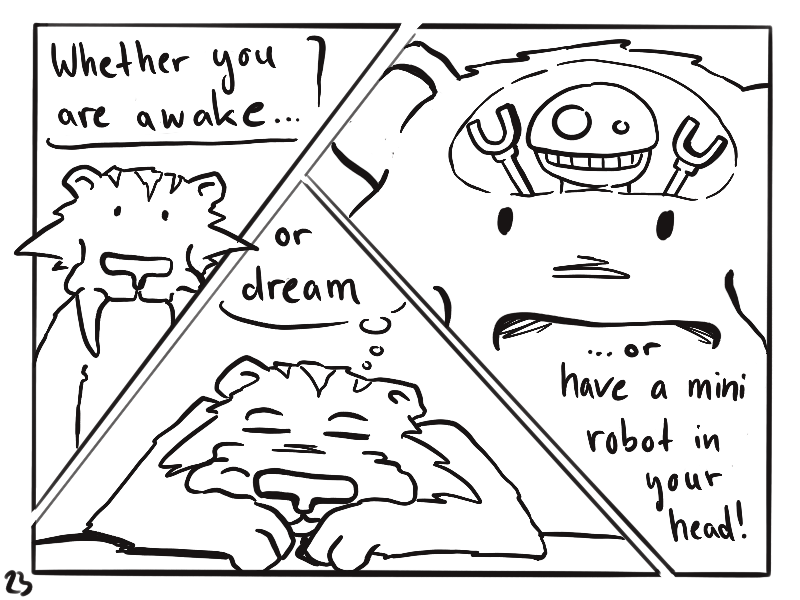 Whether you
are awake...
or
dream
...or
have a mini
robot in
your
head!
23